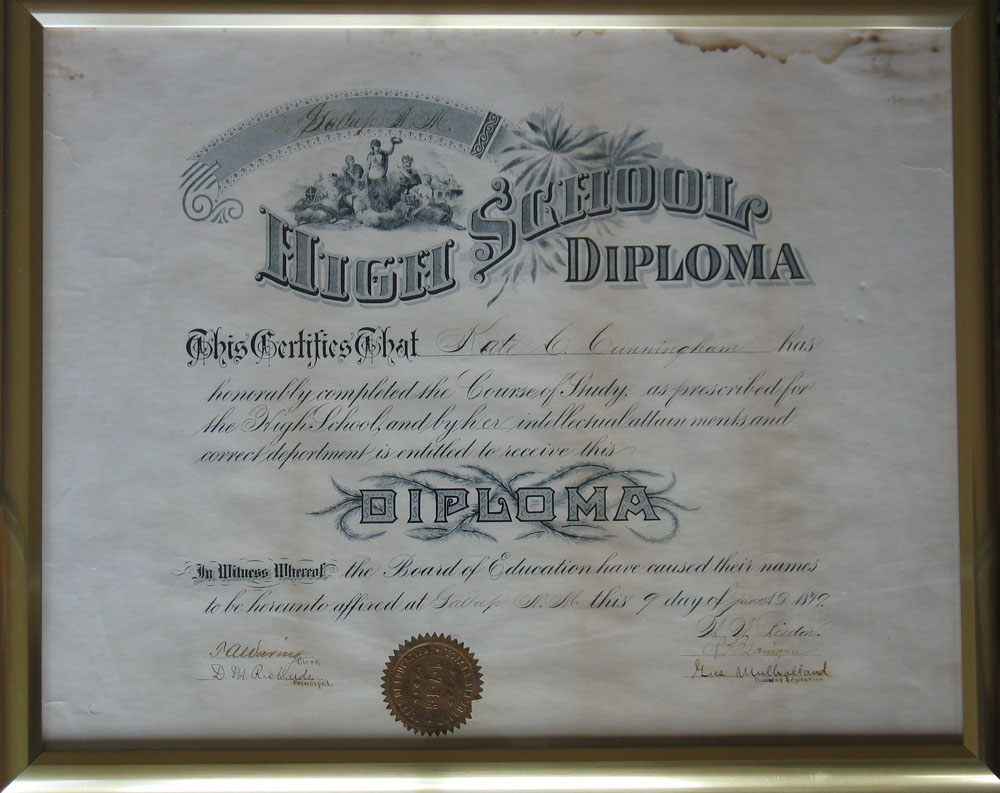 Gallup N. M.
HIGH SCHOOL
DIPLOMA
This Certifies That Kate C. Cunningham has
honorably completed the Course of Study, as prescribed for
the High School, and by her intellectual attainments and
correct deportment is entitled to receive this
DIPLOMA
In Witness Whereof the Board of Education have caused their names
to be hereunto affixed at Gallup N. M. this 9 day of June A.D. 189
F A Waring
Clerk
D. M. Richards
Principal.
Gus Mulholland
Board of Education